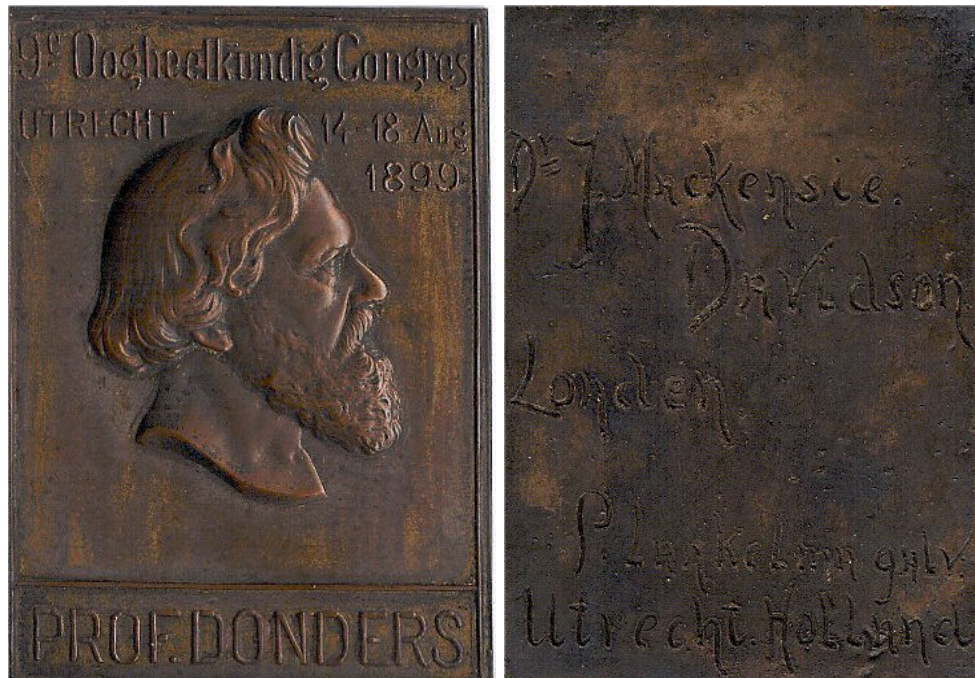 9e Oogheelkundig Congres
UTRECHT 14-18 Aug
1899
PROF. DONDERS
Dr J. Mackensie.
Davidson
Londen
Utrecht. Holland